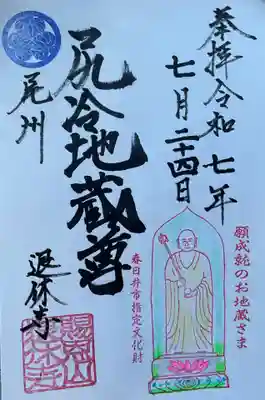 奉拝令和七年
七月二十四日
願成就のお地蔵さま
尻冷地蔵尊
春日井市指定文化財
尾州
退休寺